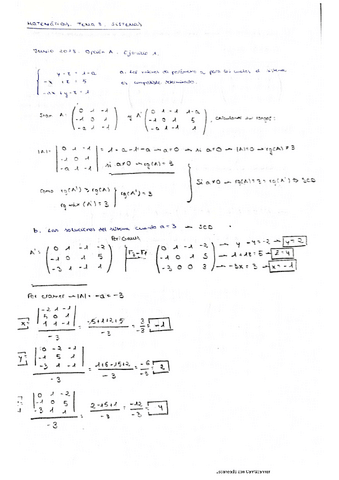 MATEMÁTICAS. TEMA 3. SISTEMAS
JUNIO 2013. Opción A. Ejercicio 1.
y - z = 1 - a
-x + z = 5
-ax + y - z = 1
a. los valores del parámetro a para los cuales el sistema es compatible determinado.
Sean A = ( 0 1 -1 ; -1 0 1 ; -a 1 -1 ) y A' ( 0 1 -1 1-a ; -1 0 1 5 ; -a 1 -1 1 ), calculamos sus rangos:
|A| = | 0 1 -1 ; -1 0 1 ; -a 1 -1 |
si a≠0 → rg(A) = 3
Como rg(A') ≥ rg(A)
rg(A') = 3
Si a≠0 → rg(A) = 3 = rg(A') → SCD
b. Las soluciones del sistema cuando a = 3 → SCD
Por Gauss
A' = ( 0 1 -1 -2 ; -1 0 1 5 ; -3 1 -1 1 )
( 0 1 -1 -2 ; -1 0 1 5 ; -3 0 0 3 )
→ y - 4 = -2 → y = 2
→ 1 + z = 5 → z = 4
→ -3x = 3 → x = -1
Por Cramer → |A| = -a = -3
x = | -2 1 -1 ; 5 0 1 ; 1 1 -1 | / -3 = 3/-3 = -1
y = | 0 -2 -1 ; -1 5 1 ; -3 1 -1 | / -3 = -6/-3 = 2
| 0 1 -2 ; -1 0 5 ; -3 1 1 | / -3 = -12/-3 = 4
Escaneado con CamScanner